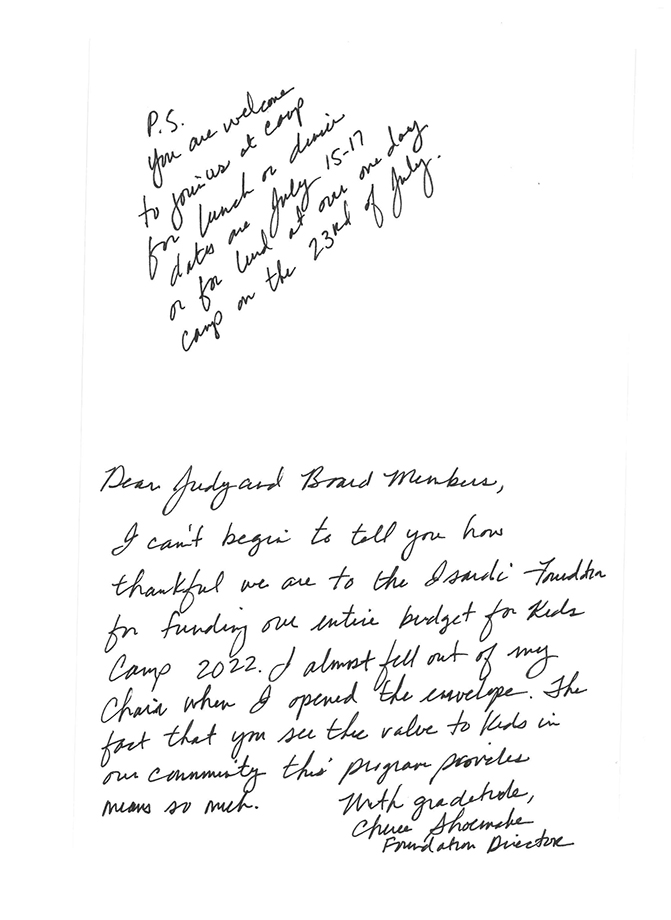 P.S.
You are welcome
to join us at camp
for lunch or dinner
dates are July 15-17
or for lund at our one day
camp on the 23rd of July.
Dear Judy and Board Members,
I can't begin to tell you how
thankful we are to the Isardi Foundation
for funding our entire budget for Kids
Camp 2022. I almost fell out of my
Chair when I opened the envelope. The
fact that you see the value to Kids in
our community this program provides
means so much.
With gratitude,
Shoemake
Foundation Director